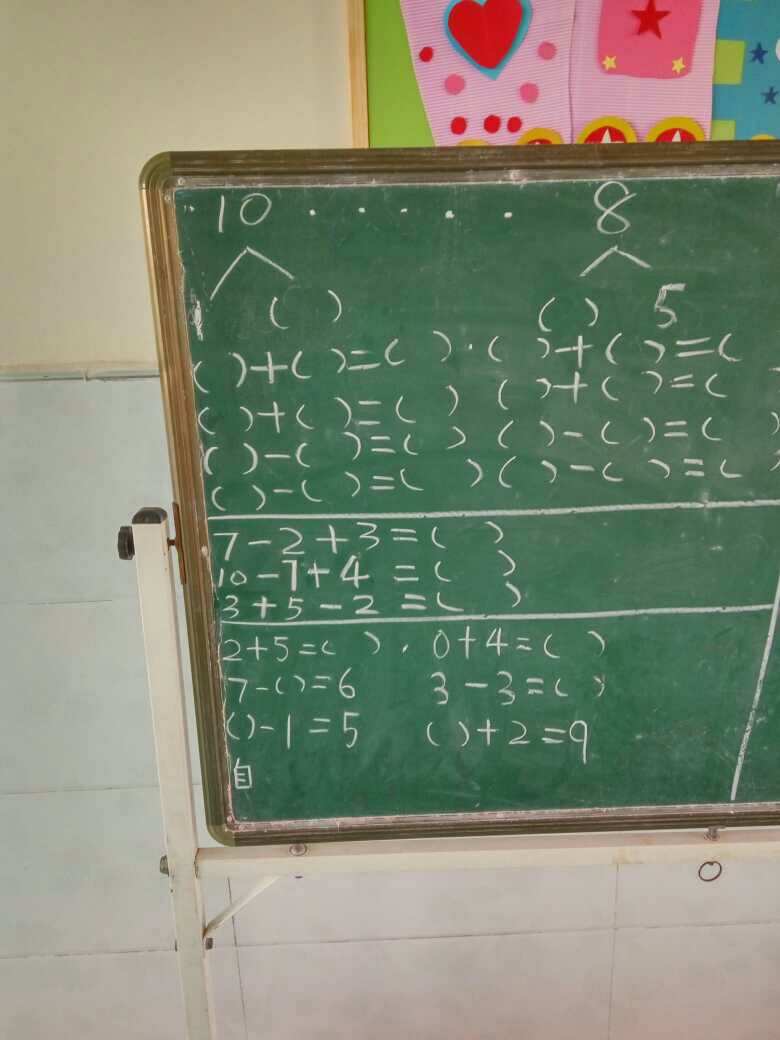 10 . . . . . 8
( ) ( ) 5
( )+( )=( ) . ( )+( )=(
( )+( )=( ) ( )+( )=( )
( )-( )=( ) ( )-( )=( )
( )-( )=( ) ( )-( )=( )
7-2+3=( )
10-7+4=( )
3+5-2=( )
2+5=( ) . 0+4=( )
7-( )=6 3-3=( )
( )-1=5 ( )+2=9